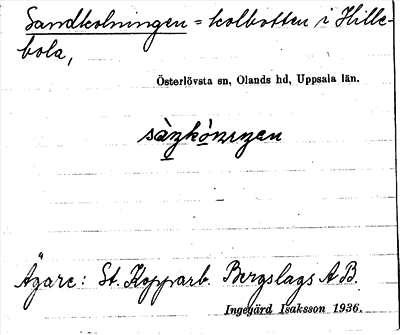 Sandkolningen = kolbotten i Hille-
bola,
Österlövsta sn, Olands hd, Uppsala län.
Ägare: St. Kopparb. Bergslags A B.
Ingegärd Isaksson 1936.